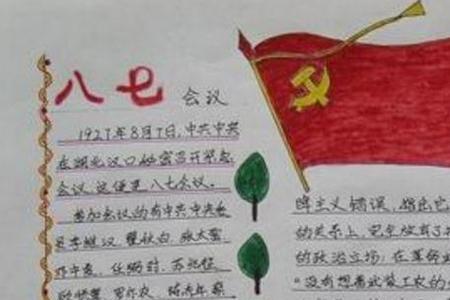 八七 会议
1927年8月7日,中共中央
在湖北汉口秘密召开紧急
会议,这便是八七会议。
参加会议的有中共中央委
员李维汉、瞿秋白、张太雷、
邓中夏、任弼时、苏兆征、
顾顺章、罗亦农、陈乔年、蔡
降主义错误,指出它
的关系上,完全放弃了
的政治立场;在革命
“没有想着武装工农的